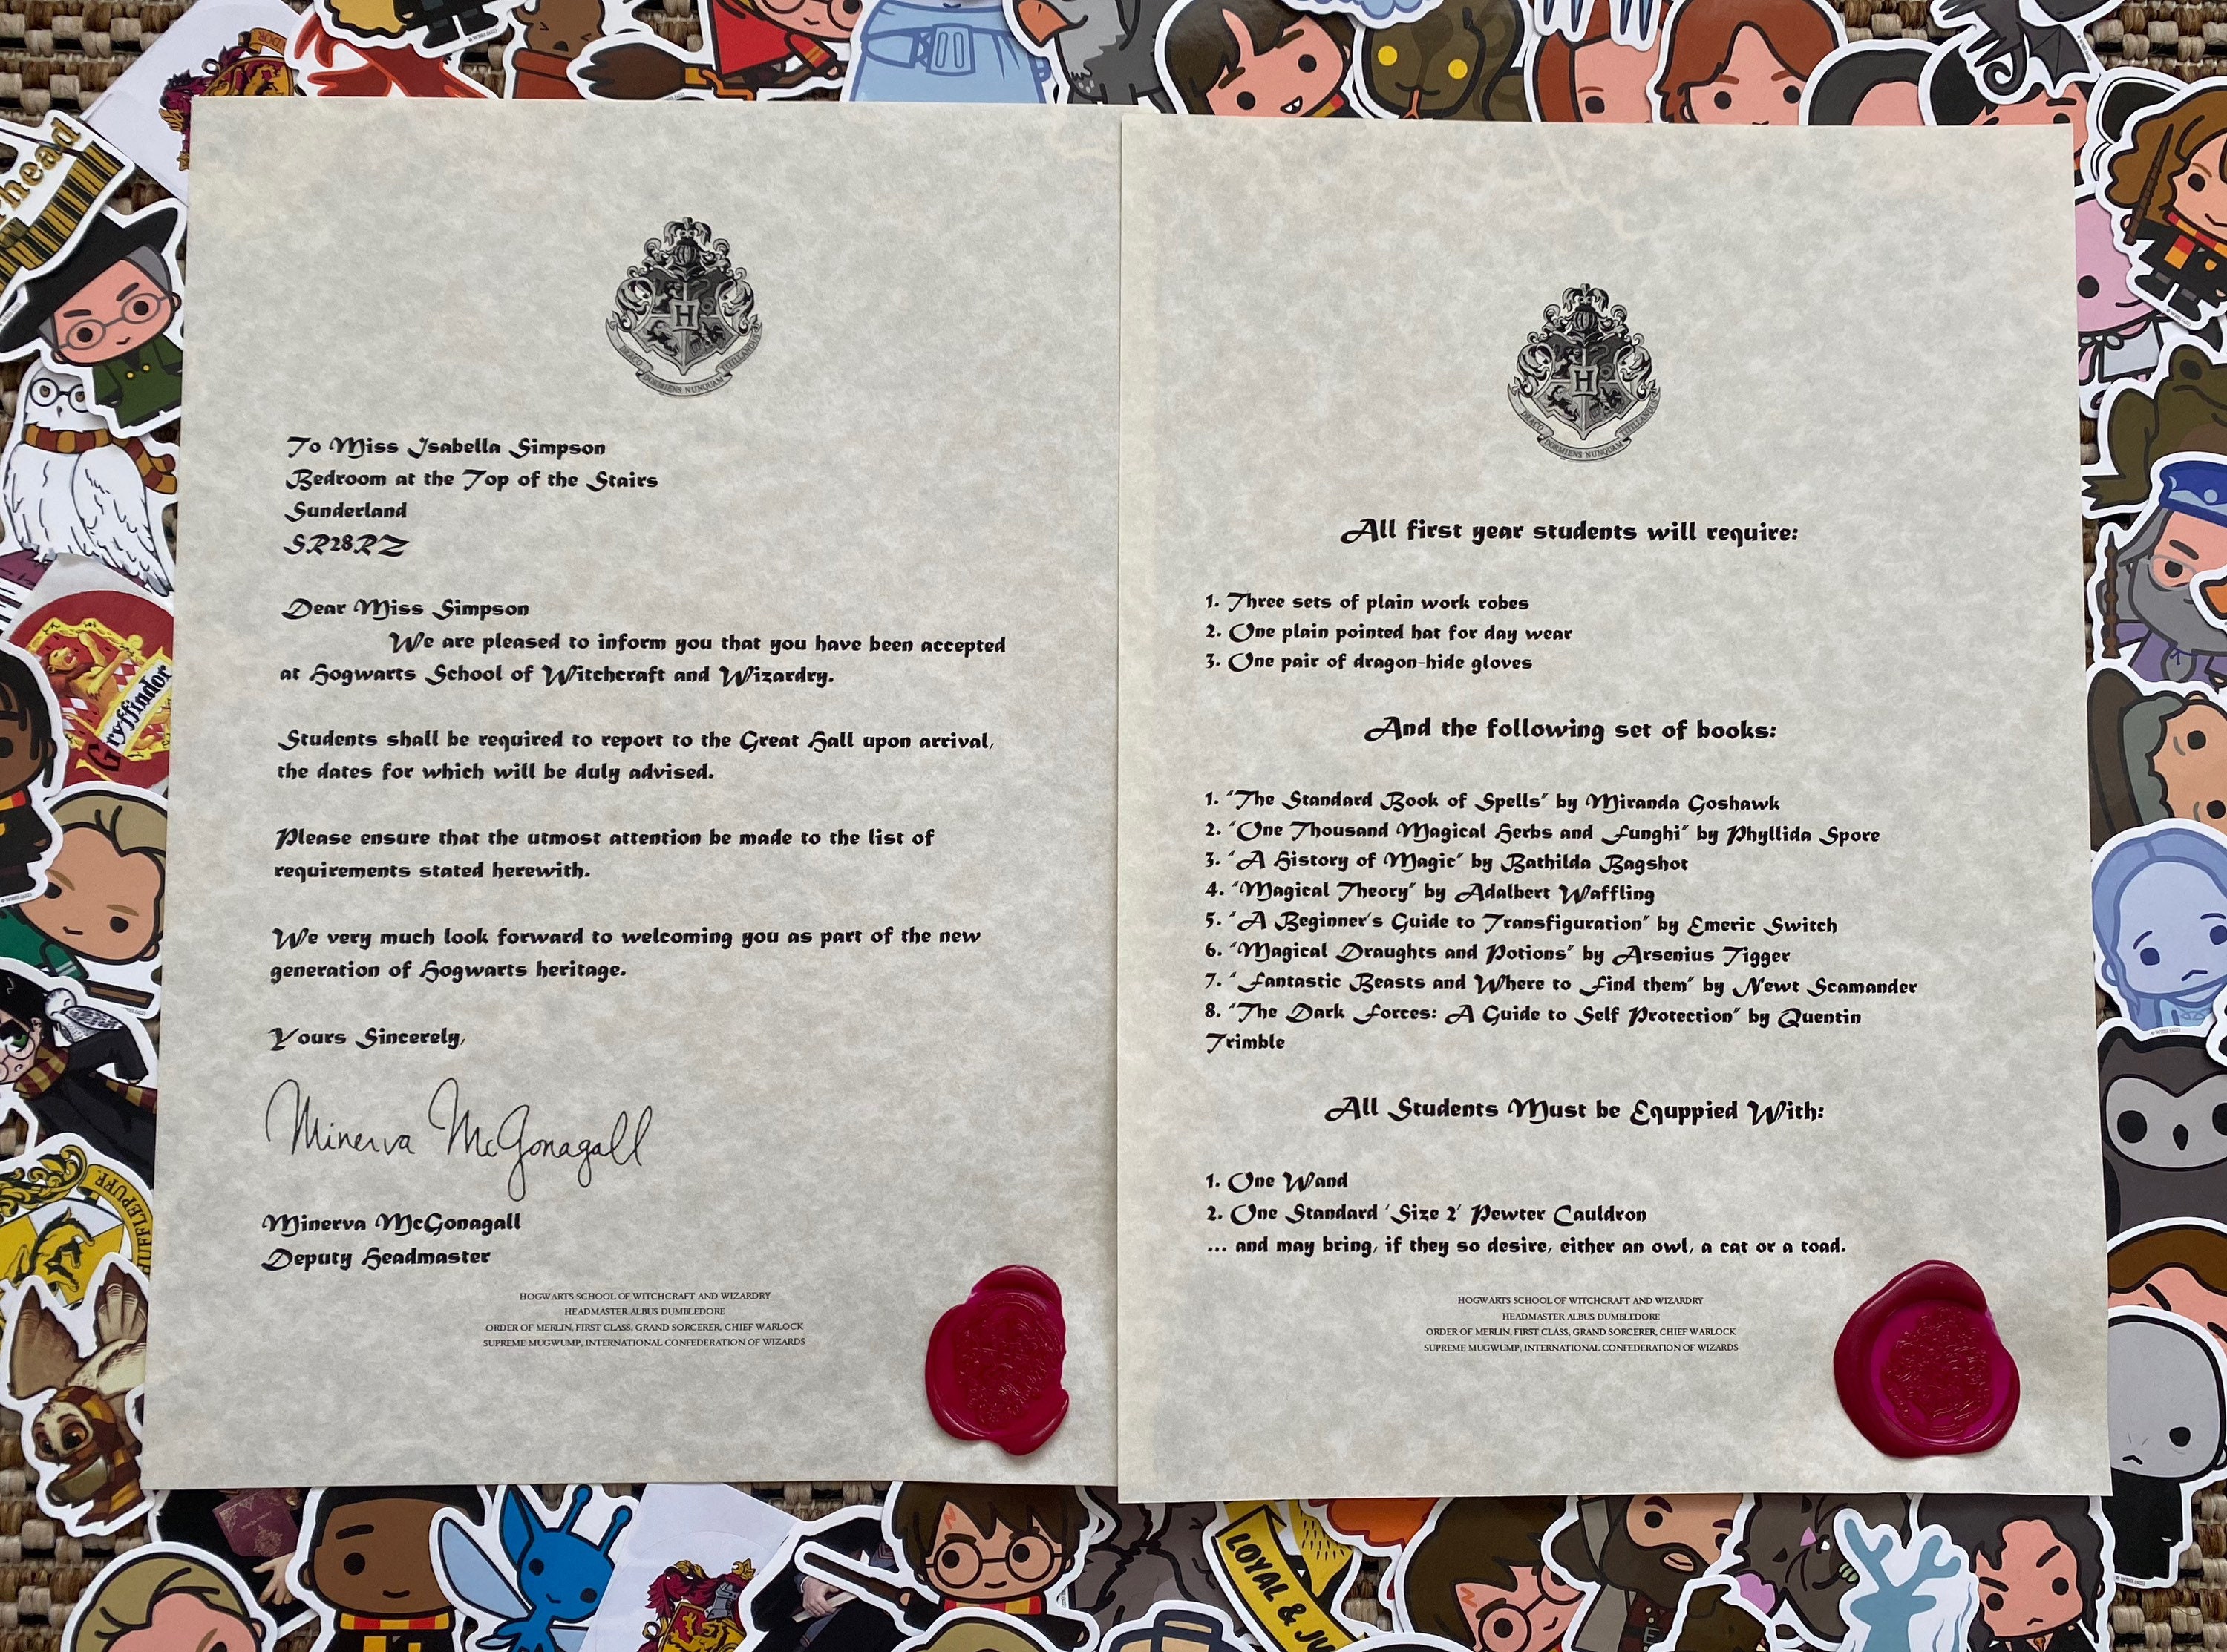 head
DRACO DORMIENS NUNQUAM TITILLANDUS
H
To Miss Isabella Simpson
Bedroom at the Top of the Stairs
Sunderland
SR28RZ
Dear Miss Simpson
We are pleased to inform you that you have been accepted
at Hogwarts School of Witchcraft and Wizardry.
Students shall be required to report to the Great Hall upon arrival,
the dates for which will be duly advised.
Please ensure that the utmost attention be made to the list of
requirements stated herewith.
We very much look forward to welcoming you as part of the new
generation of Hogwarts heritage.
Yours Sincerely,
Minerva McGonagall
Minerva McGonagall
Deputy Headmaster
HOGWARTS SCHOOL OF WITCHCRAFT AND WIZARDRY
HEADMASTER ALBUS DUMBLEDORE
ORDER OF MERLIN, FIRST CLASS, GRAND SORCERER, CHIEF WARLOCK
SUPREME MUGWUMP, INTERNATIONAL CONFEDERATION OF WIZARDS
H
DRACO DORMIENS NUNQUAM TITILLANDUS
All first year students will require:
1. Three sets of plain work robes
2. One plain pointed hat for day wear
3. One pair of dragon-hide gloves
And the following set of books:
1. "The Standard Book of Spells" by Miranda Goshawk
2. "One Thousand Magical Herbs and Funghi" by Phyllida Spore
3. "A History of Magic" by Bathilda Bagshot
4. "Magical Theory" by Adalbert Waffling
5. "A Beginner's Guide to Transfiguration" by Emeric Switch
6. "Magical Draughts and Potions" by Arsenius Tigger
7. "Fantastic Beasts and Where to Find them" by Newt Scamander
8. "The Dark Forces: A Guide to Self Protection" by Quentin
Trimble
All Students Must be Equppied With:
1. One Wand
2. One Standard 'Size 2' Pewter Cauldron
... and may bring, if they so desire, either an owl, a cat or a toad.
HOGWARTS SCHOOL OF WITCHCRAFT AND WIZARDRY
HEADMASTER ALBUS DUMBLEDORE
ORDER OF MERLIN, FIRST CLASS, GRAND SORCERER, CHIEF WARLOCK
SUPREME MUGWUMP, INTERNATIONAL CONFEDERATION OF WIZARDS
Gryffindor
HUFFLEPUFF
LOYAL & JU